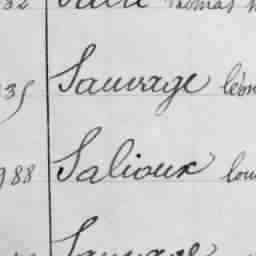 35 Sauvage léon
988 Salioux lou
Sauvage